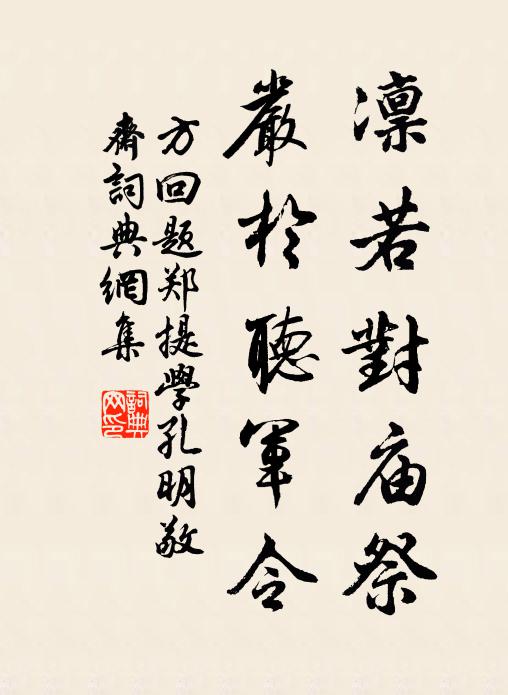 凛若對庙祭
嚴於聽軍令
方回题郑提學孔明敬
齋詞典網集
詞典
网印